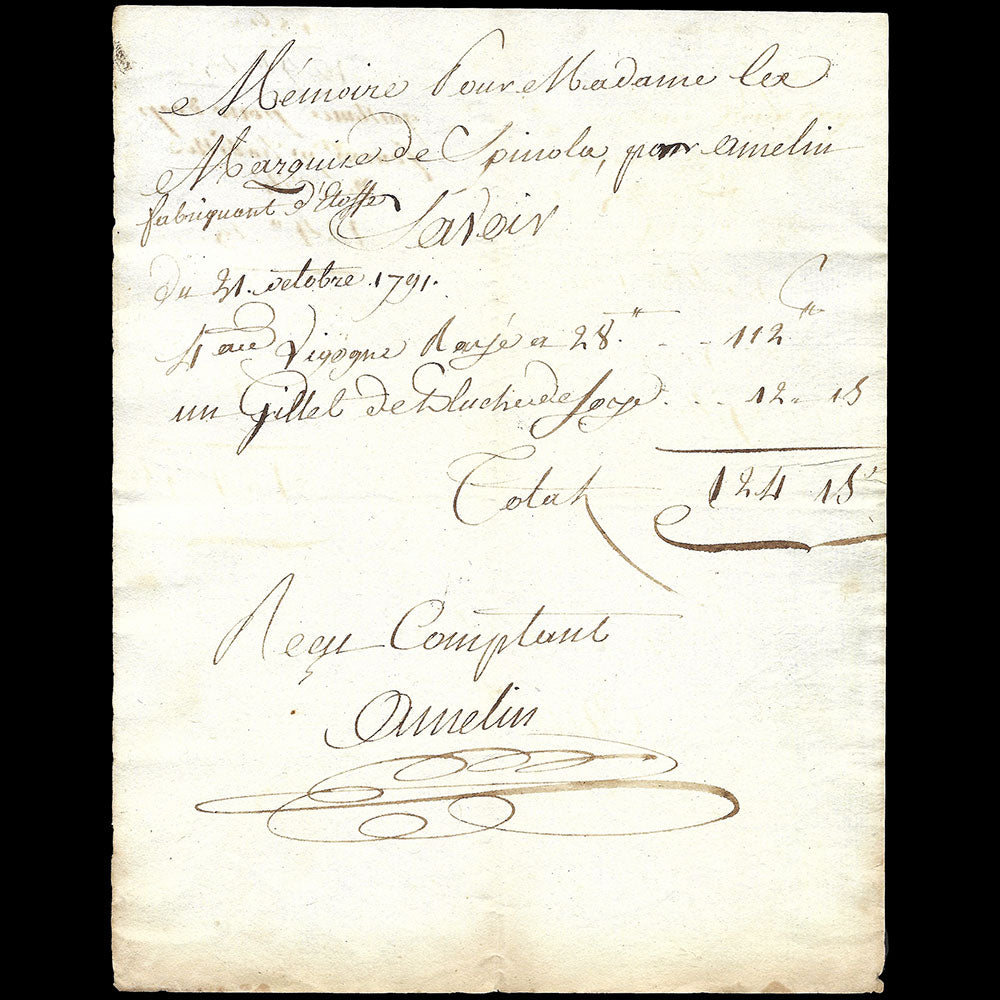 Mémoire Pour Madame la
Marquise de Spinola, par amelin
fabriquant d'Etoffe
Savoir
Du 21. octobre 1791.
4 aue Vigogne Rayé a 28.tt . . 112 tt
un Gillet de Pluche de Soye . . . 12 - 15
Total 124 15 s
Reçu Comptant
Amelin